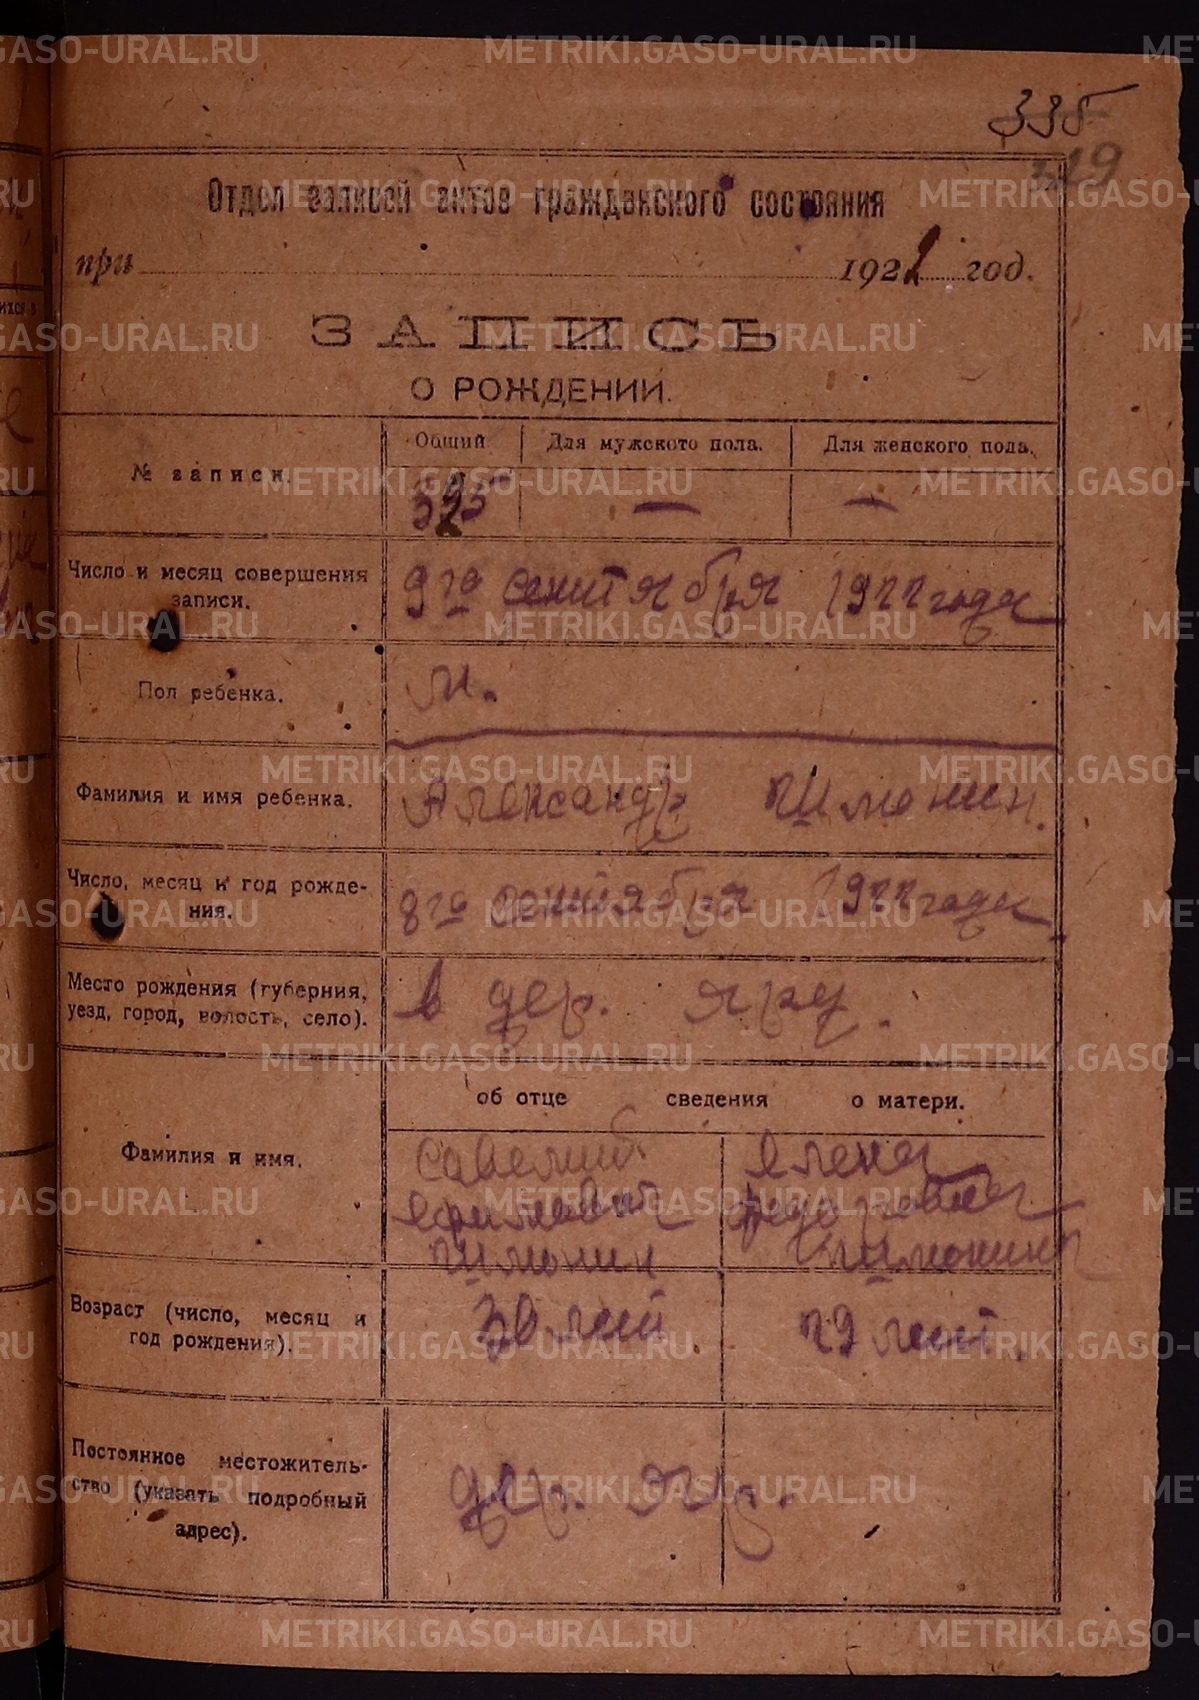 335
319
Отдел записей актов гражданского состояния
при 1922 год.
ЗАПИСЬ
О РОЖДЕНИИ.
№ записи.
Общий
Для мужского пола.
Для женского пола.
325
—
—
Число и месяц совершения
записи.
9го сентября 1922 года
Пол ребенка.
м.
Фамилия и имя ребенка.
Александр Пимонин.
Число, месяц и год рожде-
ния.
8го сентября 1922 года
Место рождения (губерния,
уезд, город, волость, село).
в дер. Яру.
об отце сведения о матери.
Фамилия и имя.
Савелий
Ефимович
Пимонин
Елена
Федоровна
Пимонина
Возраст (число, месяц и
год рождения).
30 лет
29 лет.
Постоянное местожитель-
ство (указать подробный
адрес).
дер. Яр.
METRIKI.GASO-URAL.RU